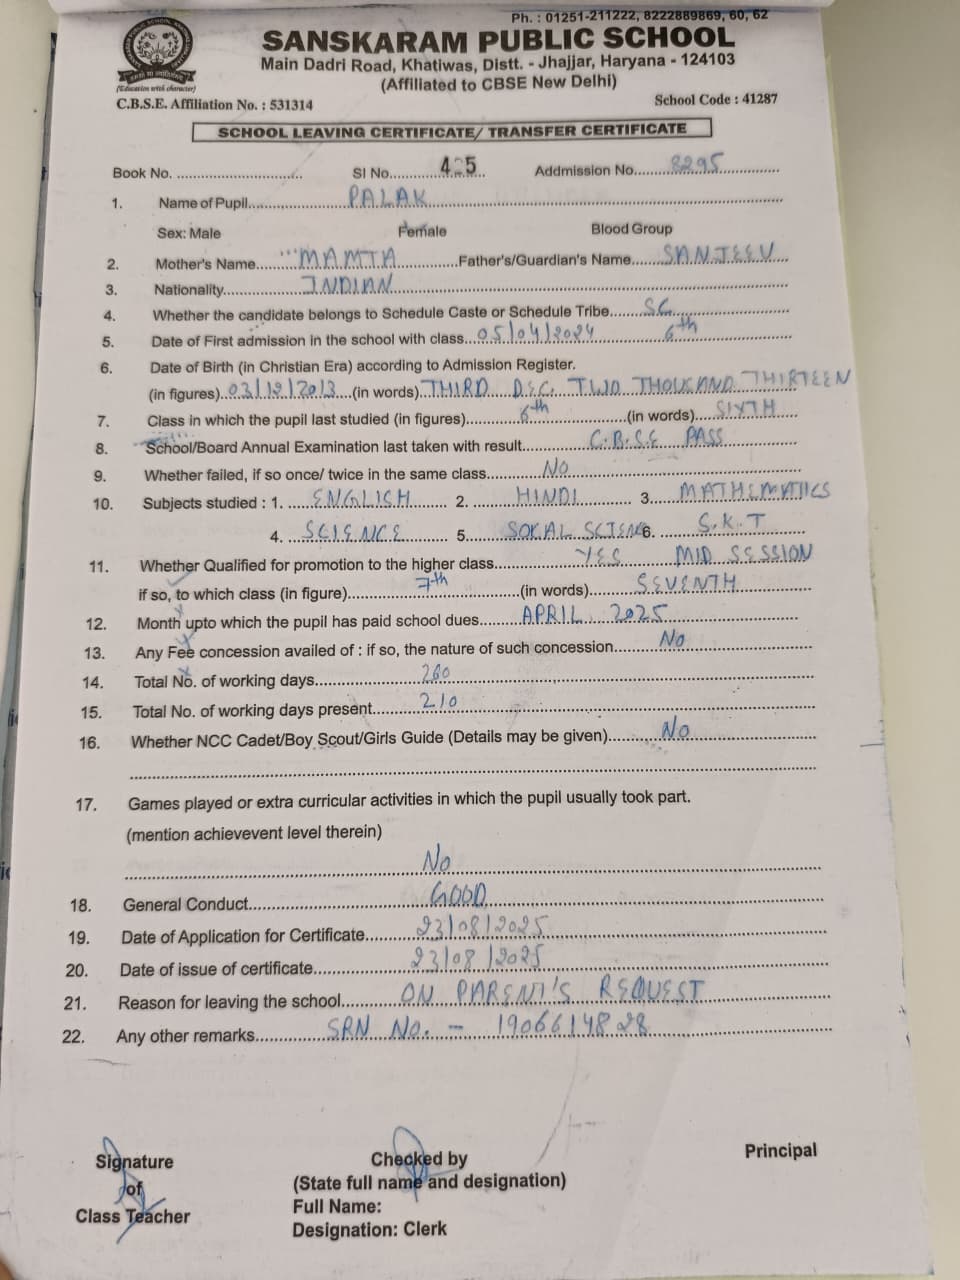 Ph. : 01251-211222, 8222889869, 60, 62
SANSKARAM PUBLIC SCHOOL
Main Dadri Road, Khatiwas, Distt. - Jhajjar, Haryana - 124103
(Affiliated to CBSE New Delhi)
(Education with character)
C.B.S.E. Affiliation No. : 531314 School Code : 41287
SCHOOL LEAVING CERTIFICATE/ TRANSFER CERTIFICATE
Book No. .............................. SI No........425.. Addmission No.......8295..............
1. Name of Pupil....................PALAK......................................
Sex: Male Female Blood Group
2. Mother's Name........MAMTA............Father's/Guardian's Name......SANJEEV...
3. Nationality..................INDIAN......................................
4. Whether the candidate belongs to Schedule Caste or Schedule Tribe.......SC..................
5. Date of First admission in the school with class...05/04/2024 6th
6. Date of Birth (in Christian Era) according to Admission Register.
(in figures)..03/12/2013...(in words)..THIRD DEC. TWO THOUSAND THIRTEEN
7. Class in which the pupil last studied (in figures)..........6th..............(in words).....SIXTH....
8. School/Board Annual Examination last taken with result............C.B.S.E PASS
9. Whether failed, if so once/ twice in the same class...........No..............................
10. Subjects studied : 1. .....ENGLISH........ 2. ..........HINDI........... 3.....MATHEMATICS
4. ...SCIENCE........ 5. SOKAL SCIENC 6. .......S.K.T.......
11. Whether Qualified for promotion to the higher class..............YES MID SESSION
if so, to which class (in figure)..............7th................(in words).......SEVENTH.........
12. Month upto which the pupil has paid school dues.......APRIL 2025
13. Any Fee concession availed of : if so, the nature of such concession.........No...............
14. Total No. of working days..................260...............................
15. Total No. of working days present.........210...............................
16. Whether NCC Cadet/Boy Scout/Girls Guide (Details may be given).........No.............
17. Games played or extra curricular activities in which the pupil usually took part.
(mention achievevent level therein)
No
18. General Conduct........................GOOD...........................
19. Date of Application for Certificate.........23/08/2025
20. Date of issue of certificate................23/08/2025
21. Reason for leaving the school..........ON PARENT'S REQUEST
22. Any other remarks..............SRN No. - 1906614828
Signature Checked by Principal
of (State full name and designation)
Class Teacher Full Name:
Designation: Clerk